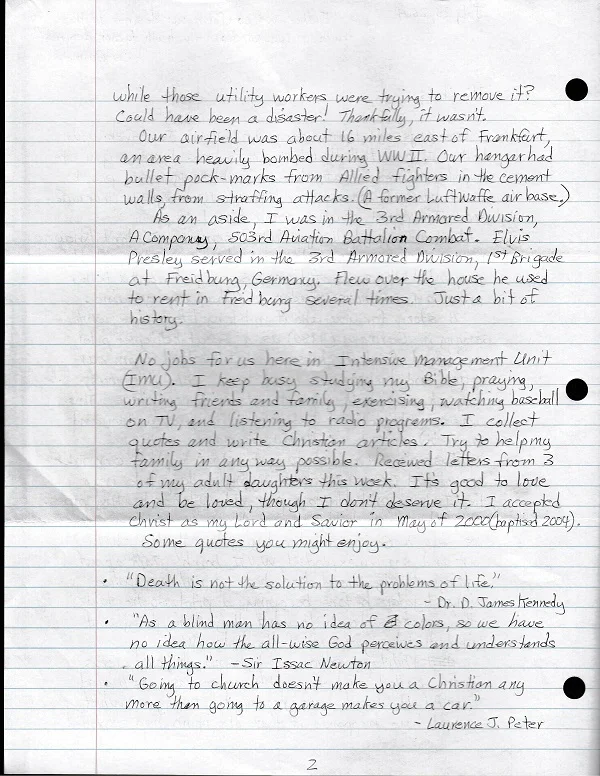 while those utility workers were trying to remove it?
Could have been a disaster! Thankfully, it wasn't.
Our airfield was about 16 miles east of Frankfurt,
an area heavily bombed during WWII. Our hangar had
bullet pock-marks from Allied fighters in the cement
walls, from straffing attacks. (A former Luftwaffe air base.)
As an aside, I was in the 3rd Armored Division,
A Company, 503rd Aviation Battalion Combat. Elvis
Presley served in the 3rd Armored Division, 1st Brigade
at Freidburg, Germany. Flew over the house he used
to rent in Fredburg several times. Just a bit of
history.
No jobs for us here in Intensive Management Unit
(Imu). I keep busy studying my Bible, praying,
writing friends and family, exercising, watching baseball
on TV, and listening to radio programs. I collect
quotes and write Christian articles. Try to help my
family in any way possible. Received letters from 3
of my adult daughters this week. It's good to love
and be loved, though I don't deserve it. I accepted
Christ as my Lord and Savior in May of 2000 (baptised 2004).
Some quotes you might enjoy.
• "Death is not the solution to the problems of life."
- Dr. D. James Kennedy
• "As a blind man has no idea of colors, so we have
no idea how the all-wise God perceives and understands
all things." - Sir Issac Newton
• "Going to church doesn't make you a Christian any
more than going to a garage makes you a car."
- Laurence J. Peter
2